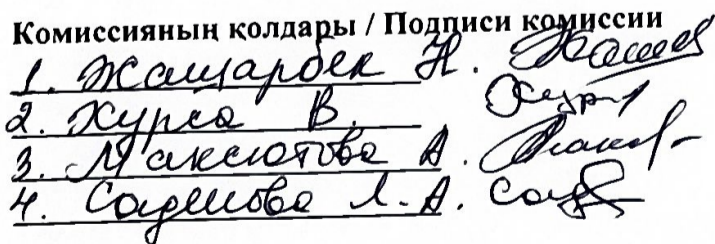 Комиссияның қолдары / Подписи комиссии
1. Жащарбек Н.
2. Хурса В.
3. Максютова А.
4. Садешова Л.А.